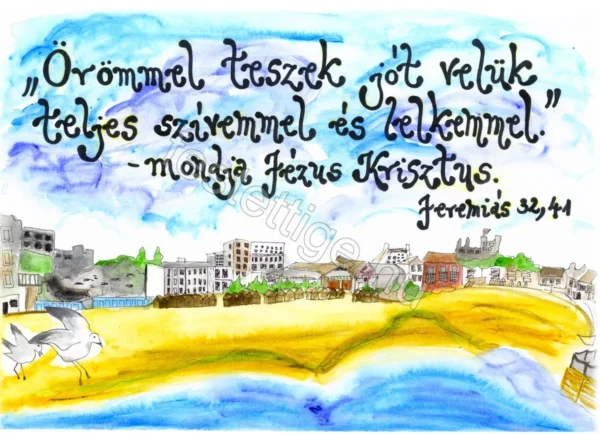 „Örömmel teszek jót velük
teljes szívemmel és lelkemmel.”
- mondja Jézus Krisztus.
Jeremiás 32,41